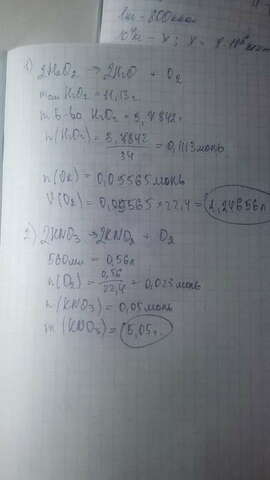 1м - 800км
1)
2H₂O₂ → 2H₂O + O₂
H₂O₂ = 11,13г
m в-ва H₂O₂ = 3,7842г
n(H₂O₂) = 3,7842/34 = 0,1113моль
n(O₂) = 0,05565моль
V(O₂) = 0,05565 × 22,4 = 1,24656л
2) 2KNO₃ → 2KNO₂ + O₂
560мл = 0,56л
n(O₂) = 0,56/22,4 = 0,025моль
n(KNO₃) = 0,05моль
m(KNO₃) = 5,05г